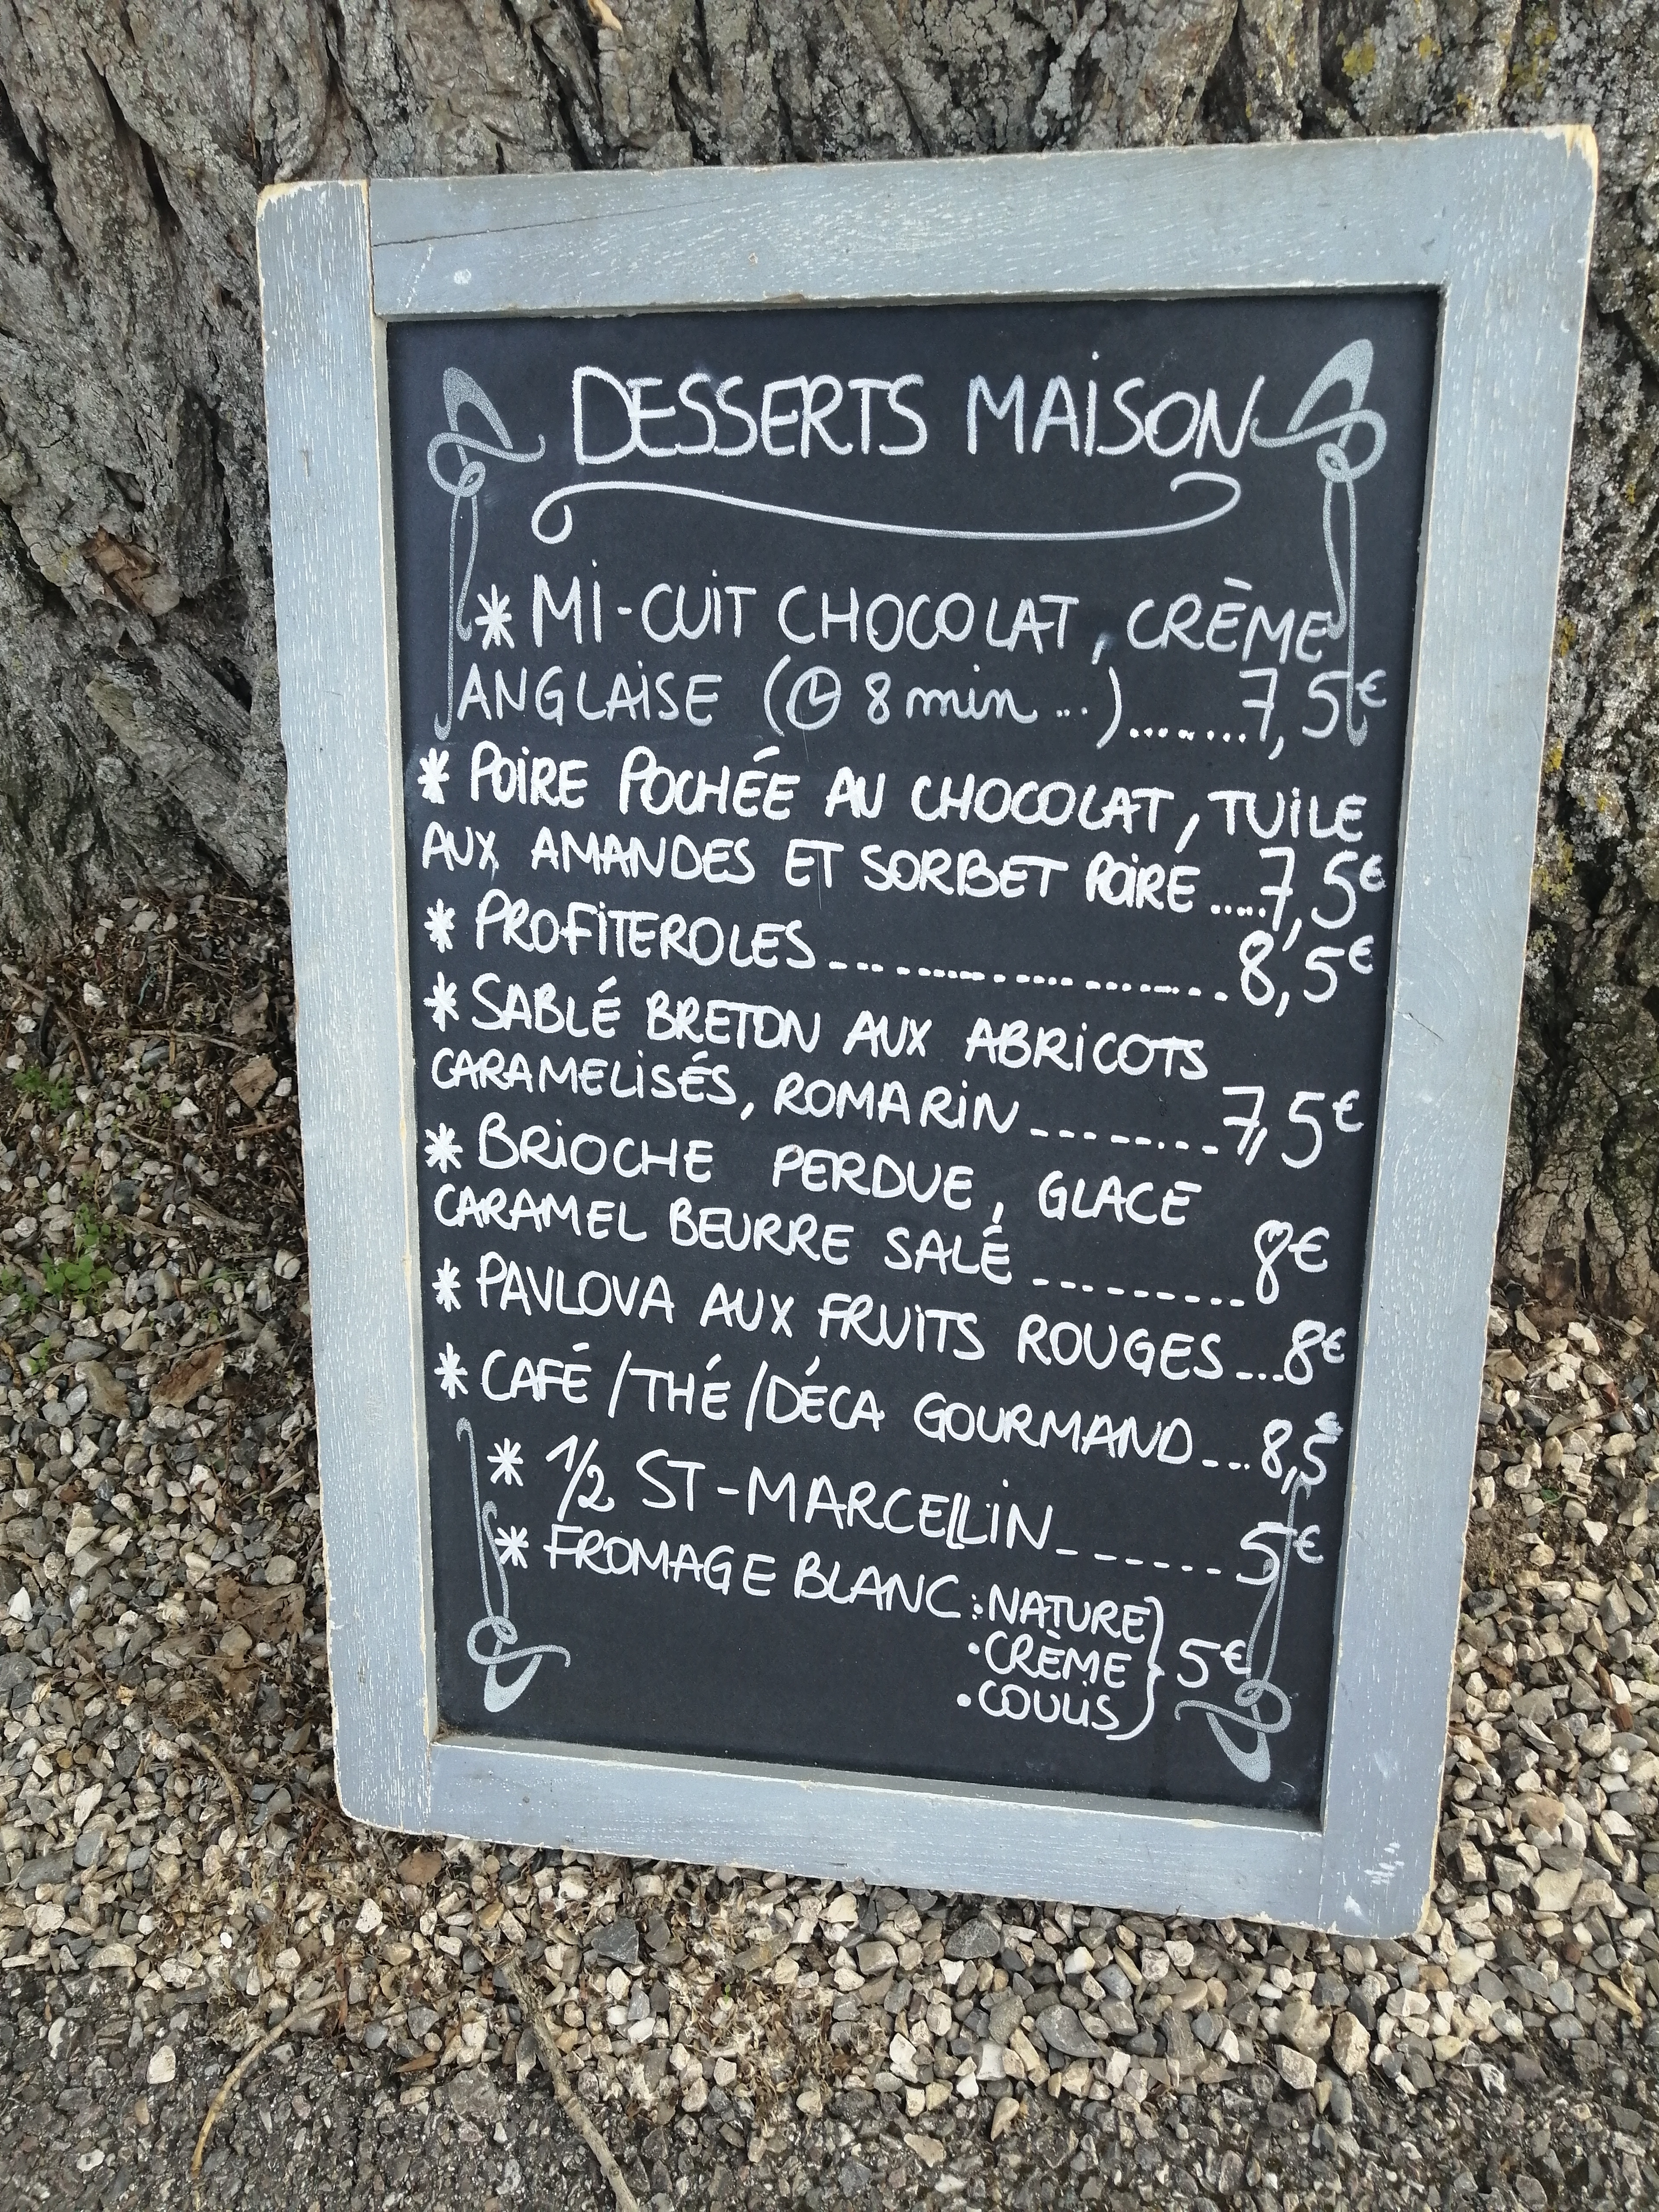 DESSERTS MAISON
* MI-CUIT CHOCOLAT, CRÈME
ANGLAISE (8 min...)........7,5€
* POIRE POCHÉE AU CHOCOLAT, TUILE
AUX AMANDES ET SORBET POIRE.....7,5€
* PROFITEROLES........................8,5€
* SABLÉ BRETON AUX ABRICOTS
CARAMELISÉS, ROMARIN.........7,5€
* BRIOCHE PERDUE, GLACE
CARAMEL BEURRE SALÉ..........8€
* PAVLOVA AUX FRUITS ROUGES....8€
* CAFÉ/THÉ/DÉCA GOURMAND....8,5€
* 1/2 ST-MARCELLIN........5€
* FROMAGE BLANC : • NATURE
• CRÈME } 5€
• COULIS